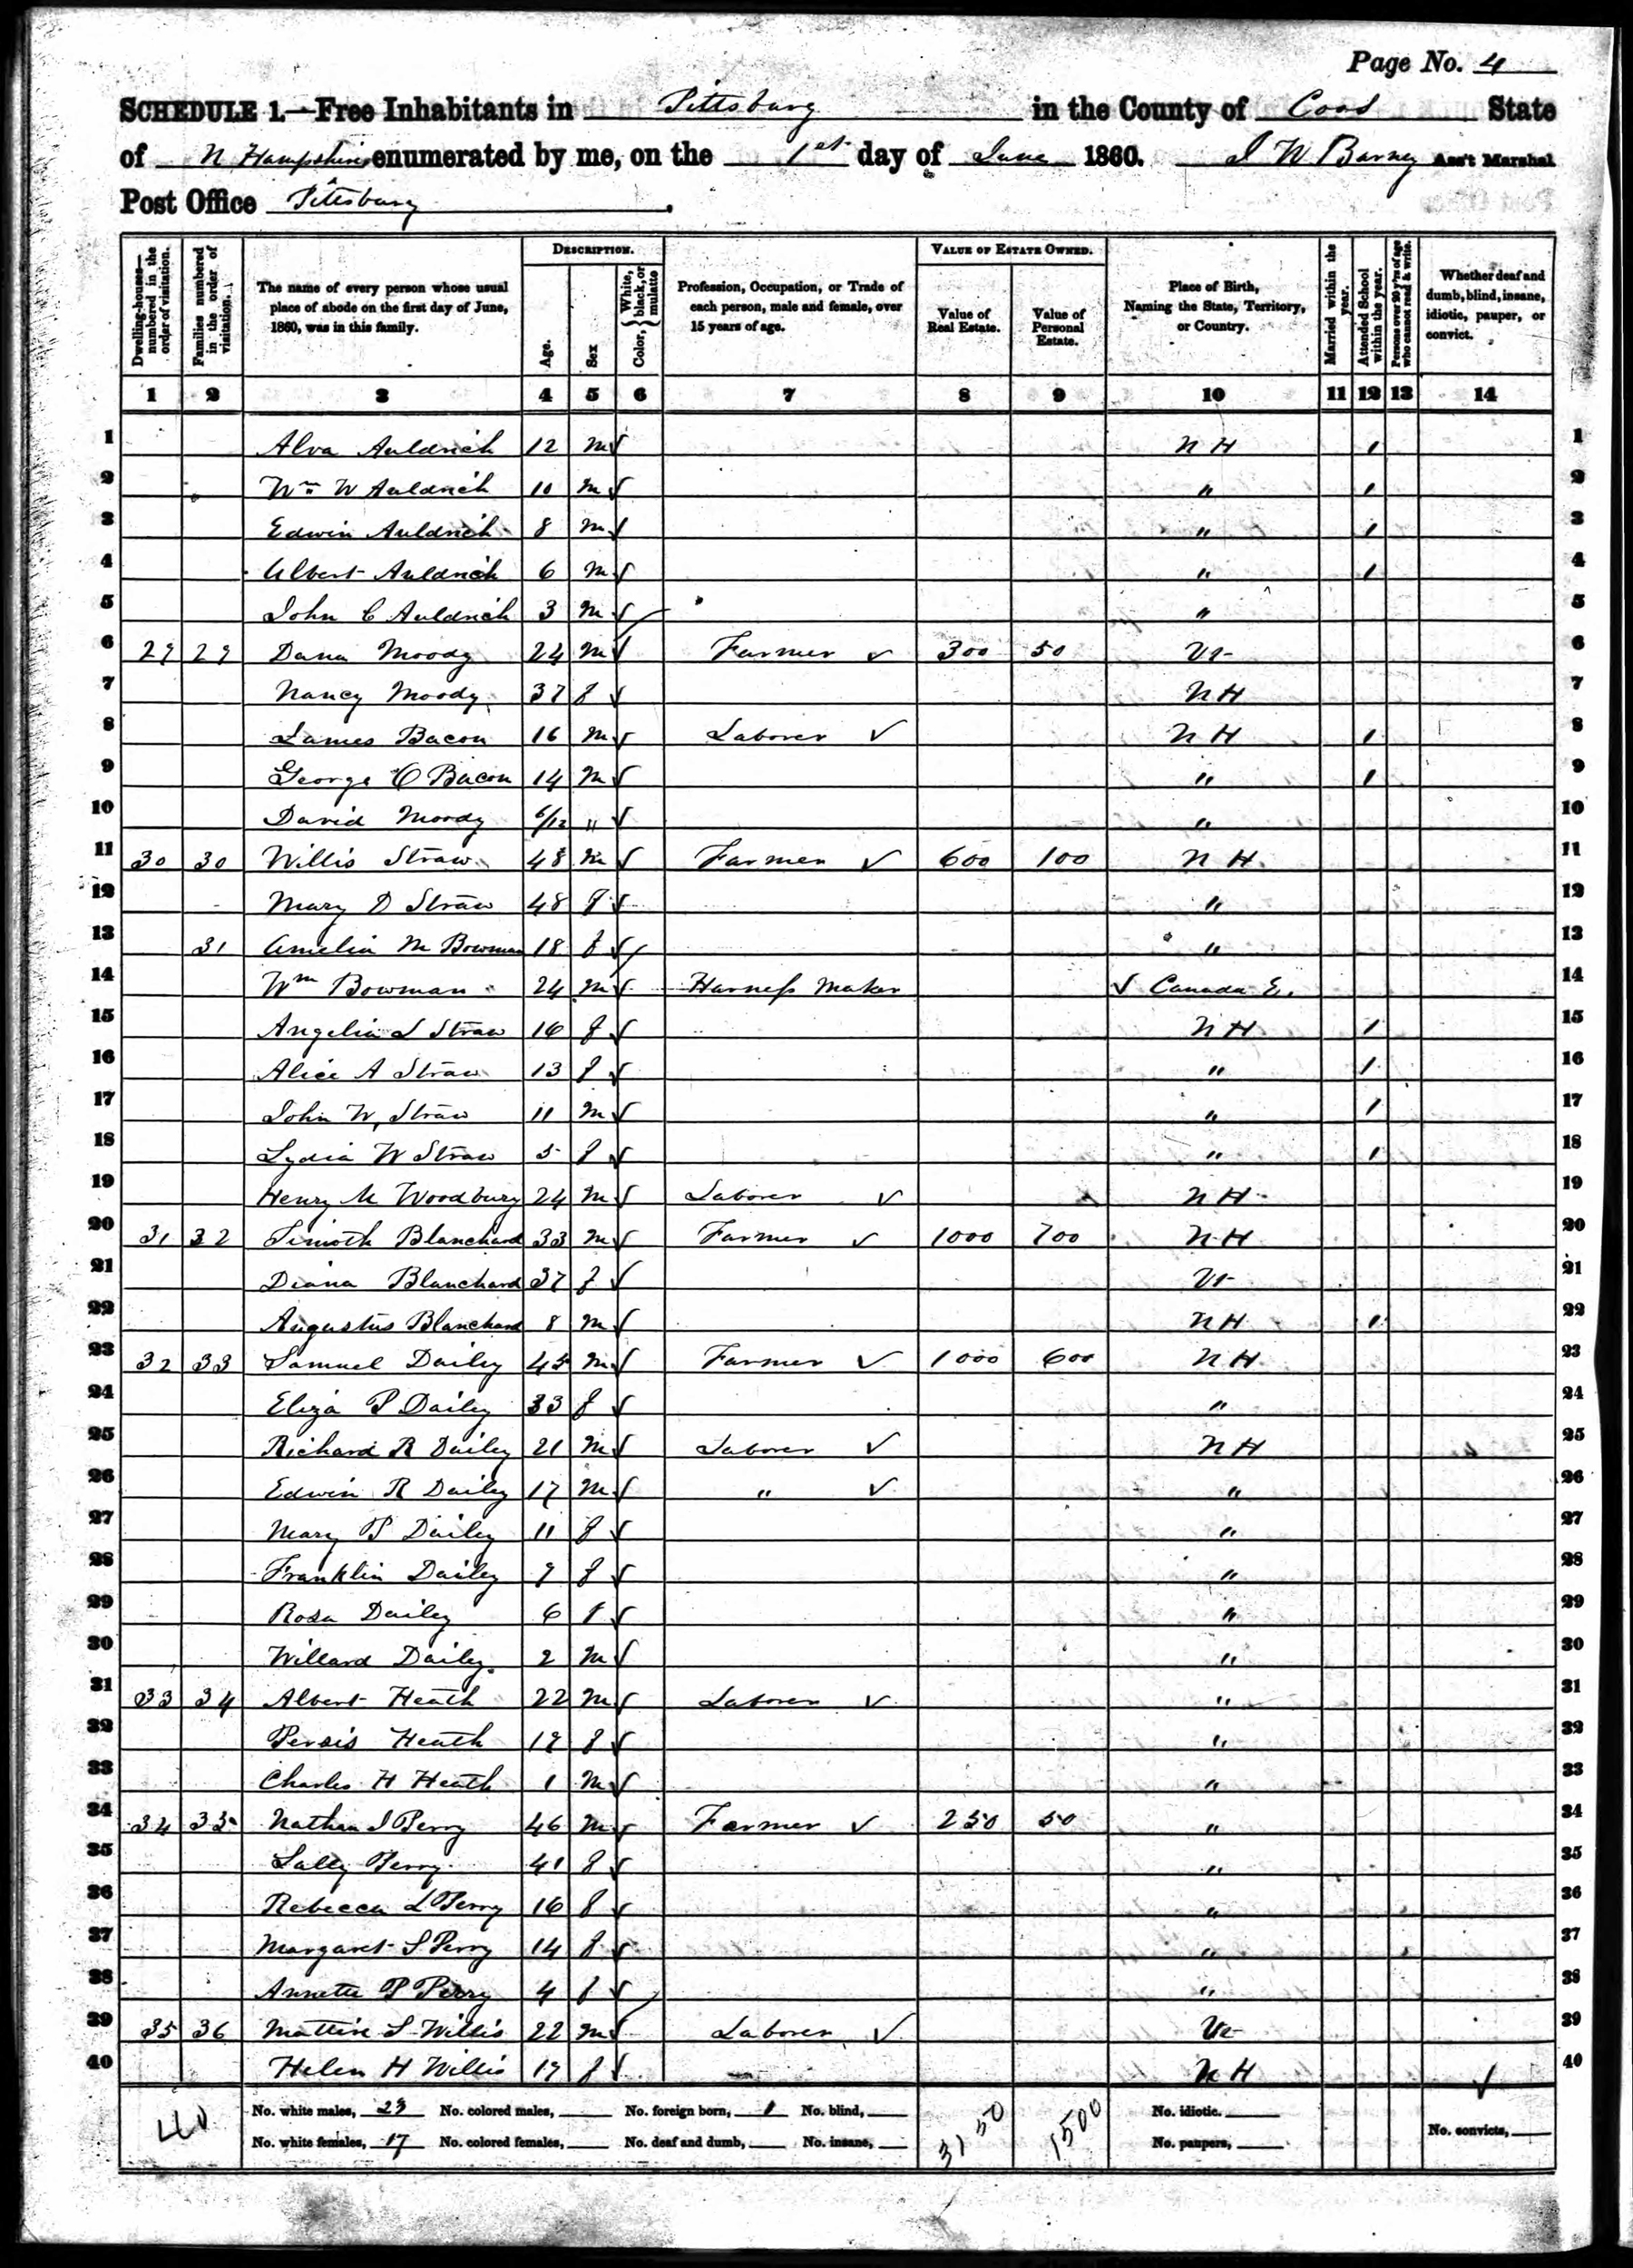 Page No. 4
SCHEDULE 1.—Free Inhabitants in Pittsburg in the County of Coos State
of N Hampshire enumerated by me, on the 1st day of June 1860. J W Barney Ass't Marshal
Post Office Pittsburg.
Dwelling-houses—numbered in the order of visitation. Families numbered in the order of visitation. The name of every person whose usual place of abode on the first day of June, 1860, was in this family. DESCRIPTION. Age. Sex Color, { White, black, or mulatto Profession, Occupation, or Trade of each person, male and female, over 15 years of age. VALUE OF ESTATE OWNED. Value of Real Estate. Value of Personal Estate. Place of Birth, Naming the State, Territory, or Country. Married within the year. Attended School within the year. Persons over 20 y'rs of age who cannot read & write. Whether deaf and dumb, blind, insane, idiotic, pauper, or convict.
1 2 3 4 5 6 7 8 9 10 11 12 13 14
1 Alva Auldrich 12 m ✓ N H 1 1
2 Wm W Auldrich 10 m ✓ " 1 2
3 Edwin Auldrich 8 m ✓ " 1 3
4 Albert Auldrich 6 m ✓ " 1 4
5 John C Auldrich 3 m ✓ " 5
6 29 29 Dana Moody 24 m ✓ Farmer ✓ 300 50 Vt 6
7 Nancy Moody 37 f ✓ N H 7
8 James Bacon 16 m ✓ Laborer ✓ N H 1 8
9 George O Bacon 14 m ✓ " 1 9
10 David Moody 6/12 " ✓ " 10
11 30 30 Willis Straw 48 m ✓ Farmer ✓ 600 100 N H 11
12 Mary D Straw 48 f ✓ " 12
13 31 Amelia M Bowman 18 f ✓ " 13
14 Wm Bowman 24 m ✓ Harness Maker ✓ Canada E. 14
15 Angelia L Straw 16 f ✓ N H 1 15
16 Alice A Straw 13 f ✓ " 1 16
17 John W, Straw 11 m ✓ " 1 17
18 Lydia W Straw 5 f ✓ " 1 18
19 Henry M Woodbury 24 m ✓ Laborer ✓ N H 19
20 31 32 Timoth Blanchard 33 m ✓ Farmer ✓ 1000 700 N H 20
21 Diana Blanchard 37 f ✓ Vt 21
22 Augustus Blanchard 8 m ✓ N H 1 22
23 32 33 Samuel Dailey 45 m ✓ Farmer ✓ 1000 600 N H 23
24 Eliza P Dailey 33 f ✓ " 24
25 Richard R Dailey 21 m ✓ Laborer ✓ N H 25
26 Edwin R Dailey 17 m ✓ " ✓ " 26
27 Mary P Dailey 11 f ✓ " 27
28 Franklin Dailey 9 f ✓ " 28
29 Rosa Dailey 6 f ✓ " 29
30 Willard Dailey 2 m ✓ " 30
31 33 34 Albert Heath 22 m ✓ Laborer ✓ " 31
32 Persis Heath 19 f ✓ " 32
33 Charles H Heath 1 m ✓ " 33
34 34 35 Nathan S Perry 46 m ✓ Farmer ✓ 250 50 " 34
35 Sally Perry 41 f ✓ " 35
36 Rebecca L Perry 16 f ✓ " 36
37 Margaret S Perry 14 f ✓ " 37
38 Annette P Perry 4 f ✓ " 38
39 35 36 S Willis 22 m ✓ Laborer ✓ Vt 39
40 Helen H Willis 19 f ✓ N H ✓ 40
40 No. white males, 23 No. colored males, No. foreign born, 1 No. blind, 3150 1500 No. idiotic.
No. white females, 17 No. colored females, No. deaf and dumb, No. insane, No. paupers, No. convicts,